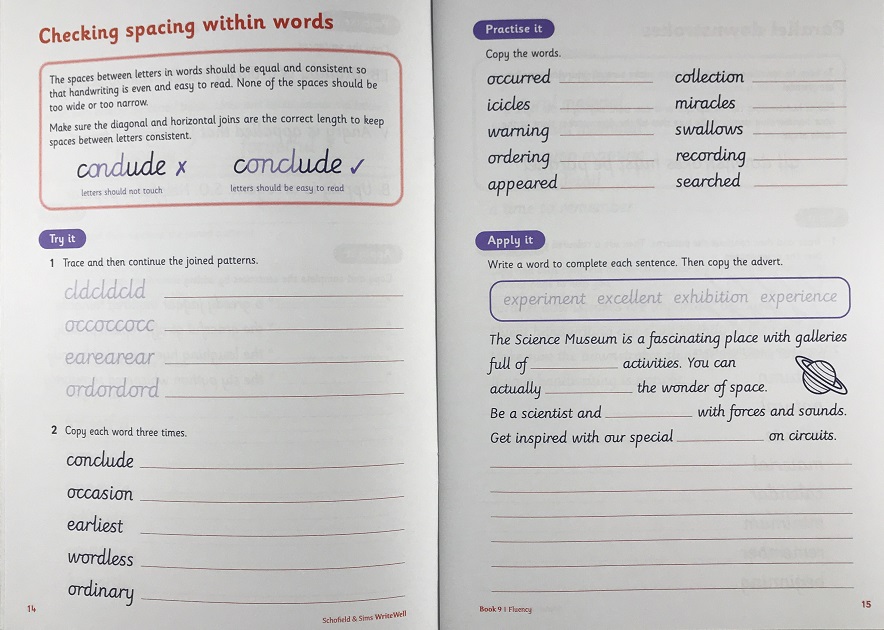 Checking spacing within words
The spaces between letters in words should be equal and consistent so
that handwriting is even and easy to read. None of the spaces should be
too wide or too narrow.
Make sure the diagonal and horizontal joins are the correct length to keep
spaces between letters consistent.
conclude ✗ conclude ✓
letters should not touch letters should be easy to read
Try it
1 Trace and then continue the joined patterns.
cldcldcld
occoccocc
earearear
ordordord
2 Copy each word three times.
conclude
occasion
earliest
wordless
ordinary
14
Schofield & Sims WriteWell
Practise it
Copy the words.
occurred collection
icicles miracles
warning swallows
ordering recording
appeared searched
Apply it
Write a word to complete each sentence. Then copy the advert.
experiment excellent exhibition experience
The Science Museum is a fascinating place with galleries
full of activities. You can
actually the wonder of space.
Be a scientist and with forces and sounds.
Get inspired with our special on circuits.
Book 9 | Fluency
15